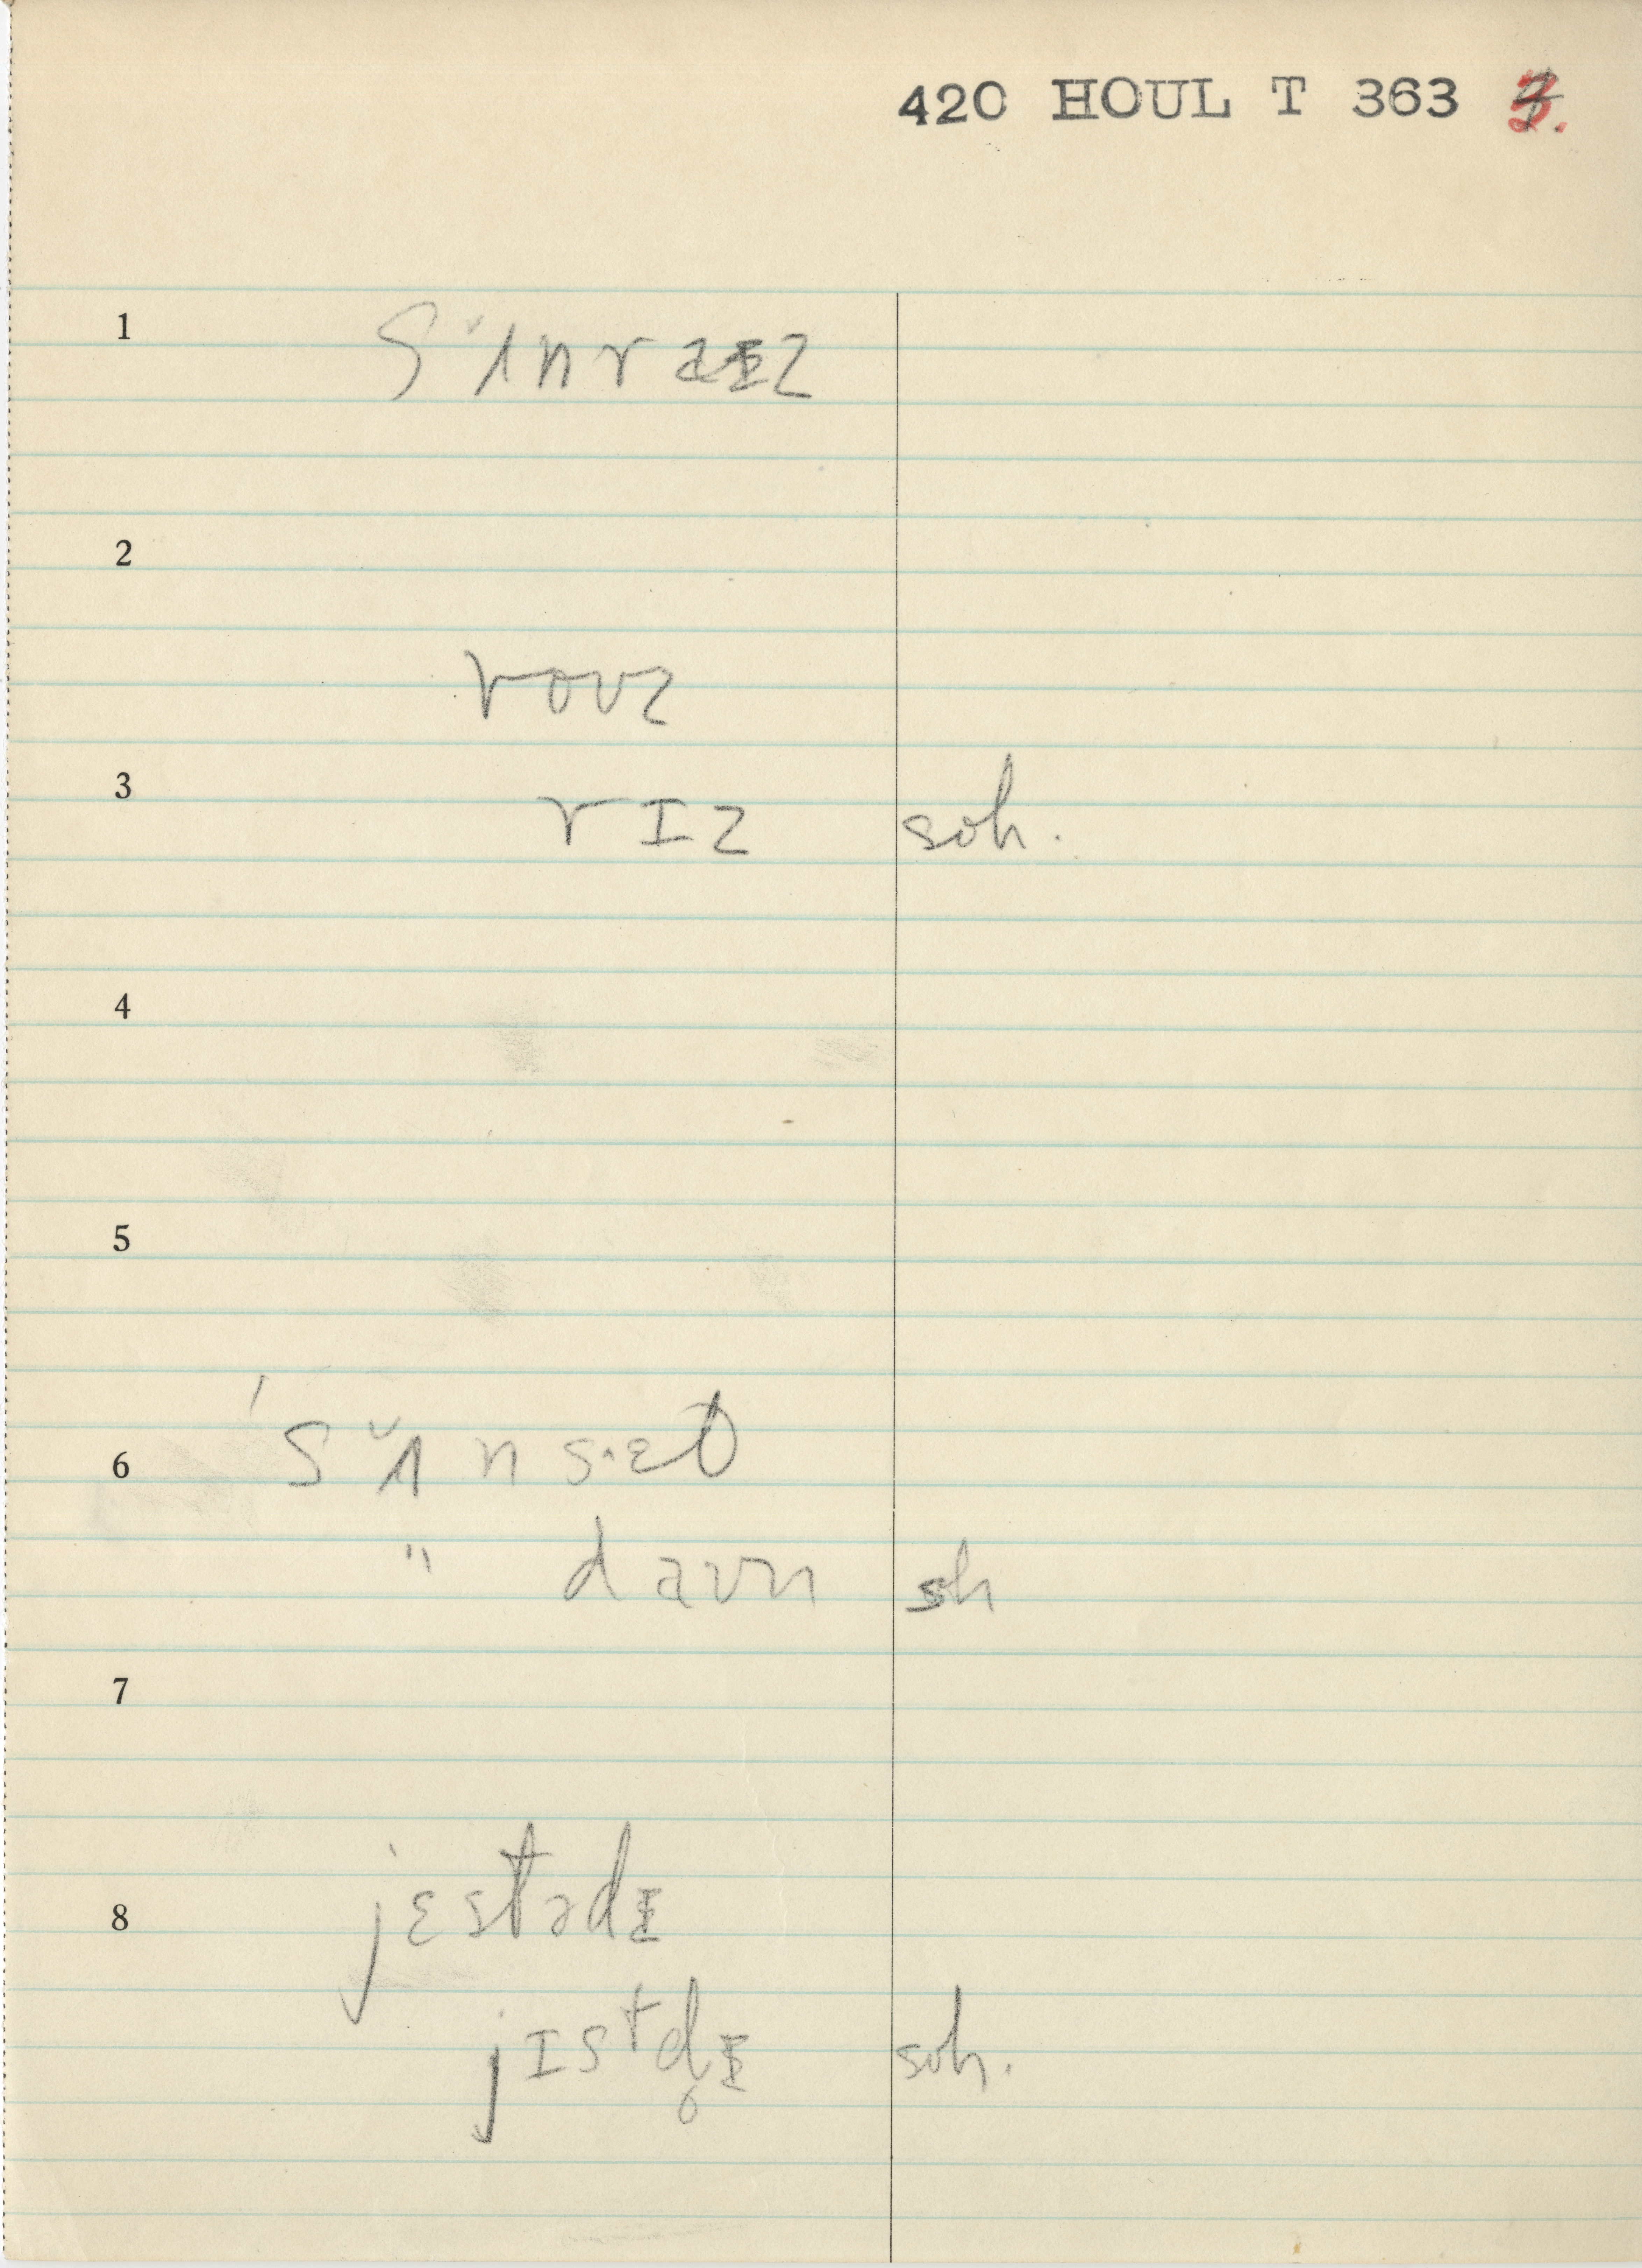 420 HOUL T 363 3.
1 sˇʌnraɪz
2
roʊz
3 rɪz soh.
4
5
6 'sˇʌn s·ɛt
" daʊn sh
7
8 jɛstədɪ
jɪstd̥ɪ soh.